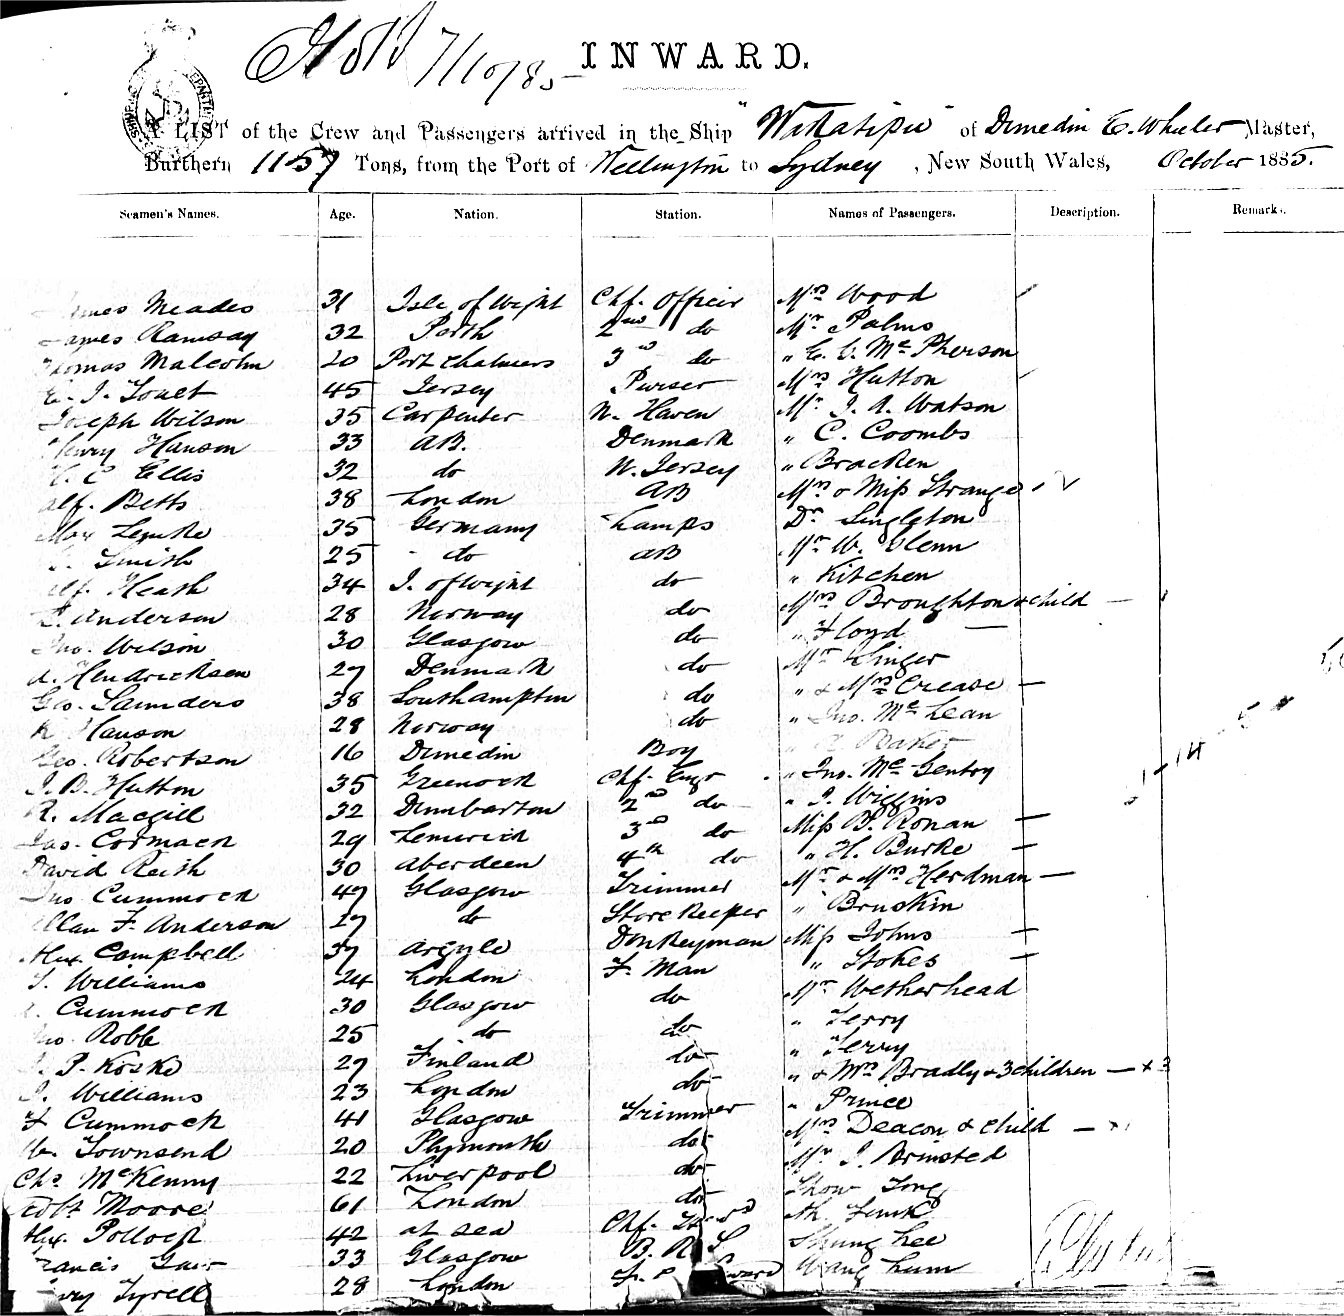 7/10/85
INWARD.
A LIST of the Crew and Passengers arrived in the Ship "Wakatipu" of Dunedin E. Wheler Master,
Burthern 1157 Tons, from the Port of Wellington to Sydney, New South Wales, October 1885.
Seamen's Names. Age. Nation. Station. Names of Passengers. Description. Remarks.
James Meades 31 Isle of Wight Chf. Officer Mrs Wood
James Ramsay 32 Perth 2nd do Mr Palms
Thomas Malcolm 20 Port Chalmers 3rd do " E. C. McPherson
E. J. 45 Jersey Purser Mrs Hutton
Joseph Wilson 35 Carpenter N. Haven Mr J. A. Watson
Henry Hanson 33 AB. Denmark " C. Coombs
H. C Ellis 32 do N. Jersey " Bracken
Alf. Betts 38 London AB Mrs & Miss Strange
Max Lemke 35 Germany Lamps Dr Singleton
Smith 25 do AB Mr W. Glenn
Alf. Heath 34 I. of Wight do " Kitchen
Anderson 28 Norway do Mrs Broughton & child
Jno. Wilson 30 Glasgow do " Floyd
A. Hendricksen 27 Denmark do Mr Singer
Geo. Saunders 38 Southampton do " & Mrs Crease
Hanson 28 Norway do " Jno. McLean
Geo. Robertson 16 Dunedin Boy " Baker
J. B. Hutton 35 Greenock Chf. Engr " Jno. McGentry
R. Macgill 32 Dumbarton 2nd do " J. Wiggins
Jas. Cormack 29 Limerick 3rd do Miss B. Ronan
David Reith 30 Aberdeen 4th do " H. Burke
Jno Cummock 47 Glasgow Trimmer Mr & Mrs Herdman
Allan F. Anderson 27 do Store Keeper " Bruskin
Alex Campbell 37 Argyle Donkeyman Miss Johns
T. Williams 24 London F. Man " Stokes
Cummock 30 Glasgow do Mr Wetherhead
Jno. Robb 25 do do " Terry
P. Koske 27 Finland do " Terry
J. Williams 23 London do " & Mrs Bradly & 3 children — + 3
F Cummock 41 Glasgow Trimmer " Prince
Townsend 20 Plymouth do Mrs Deacon & child
Chs. McKenny 22 Liverpool do Mr J. Brinsted
Robt Moore 61 London do Show Tong
Alex. Pollock 42 at sea Chf. Ah
Francis 33 Glasgow B. Shung Lee
Tyrell 28 London Wang Lum